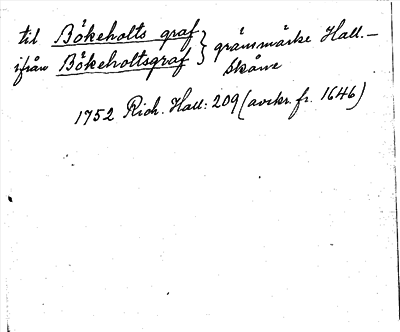 til Bökeholts graf } gränsmärke Hall. –
ifrån Bökeholtsgraf } Skåne
1752 Rich. Hall: 209 (avskr. fr. 1646)